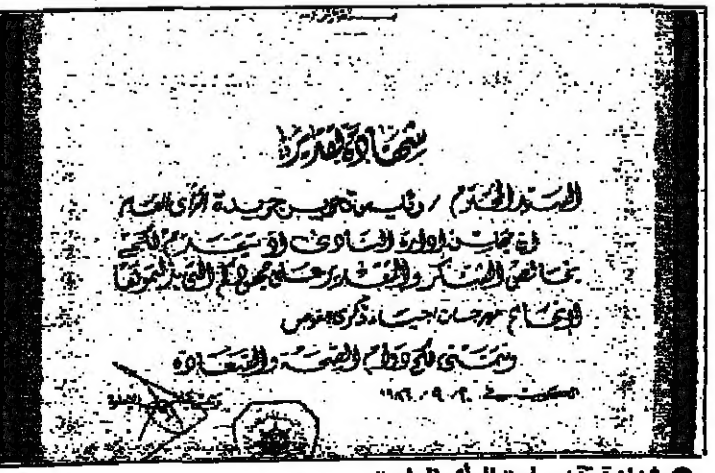 شهادة تقدير
السيد المحترم / رئيس تحرير جريدة الرأي العام
ان مجلس ادارة النادي اذ يتقدم لكم
بخالص الشكر والتقدير على جهودكم التي بذلتموها
لإنجاح مهرجان احياء ذكرى
ونتمنى لكم دوام الصحة والسعادة
الكويت في ٢٠ / ٩ / ١٩٨٦
رئيس مجلس الادارة